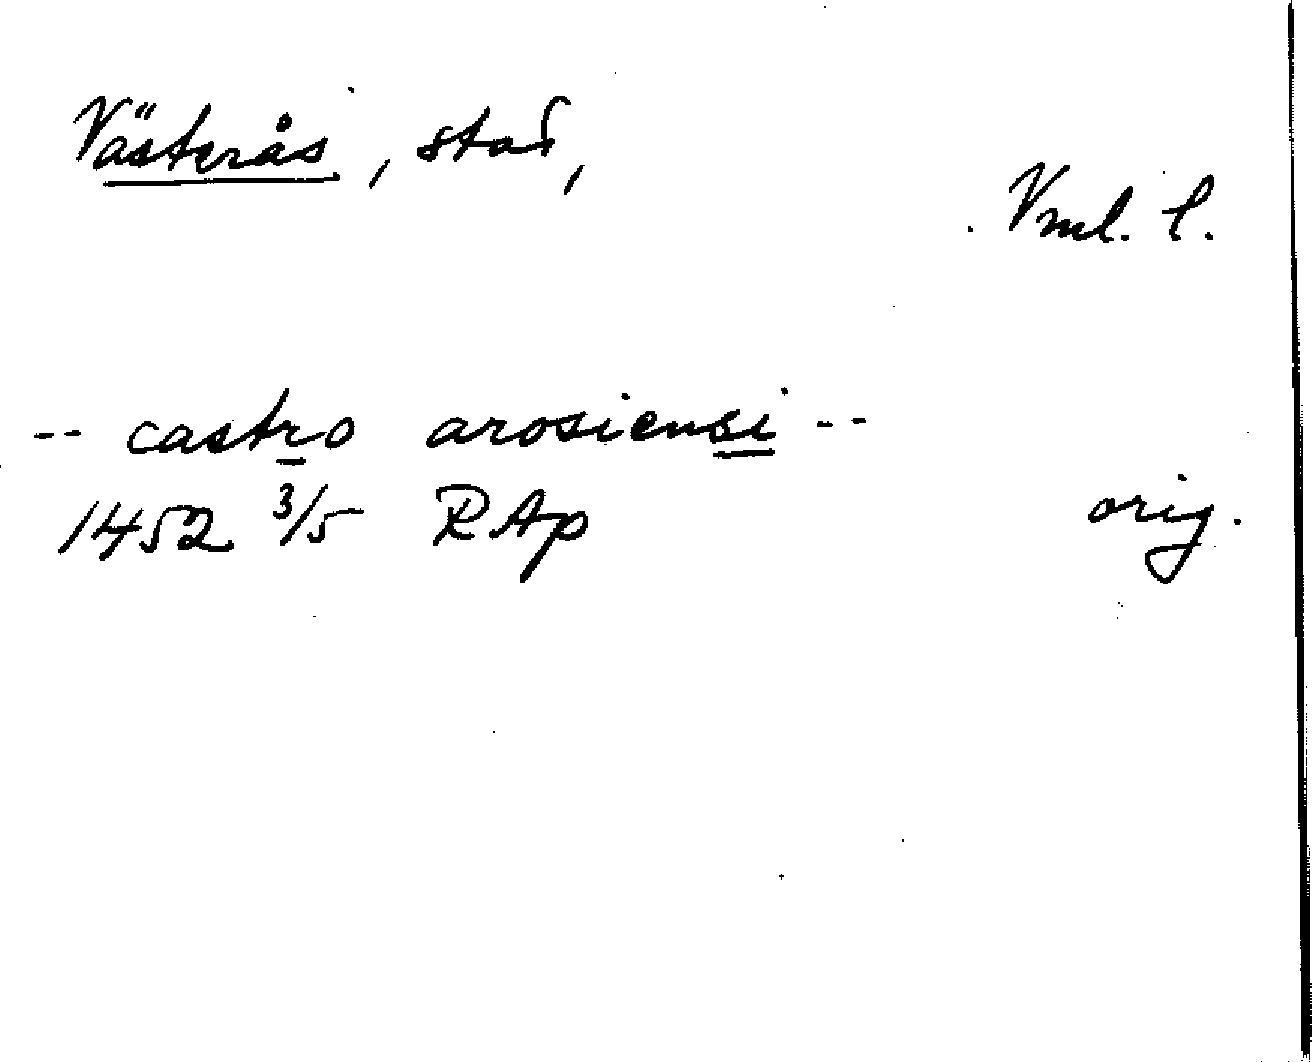 Västerås, stad,
Vml. l.
-- castro arosiensi --
1452 3/5 RAp orig.